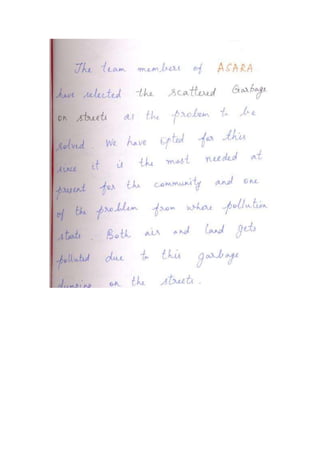 The team members of ASARA
have selected the scattered Garbage
on streets as the problem to be
solved. We have opted for this
since it is the most needed at
present for the community and one
of the problem from where pollution
starts. Both air and land gets
polluted due to this garbage
dumping on the streets.